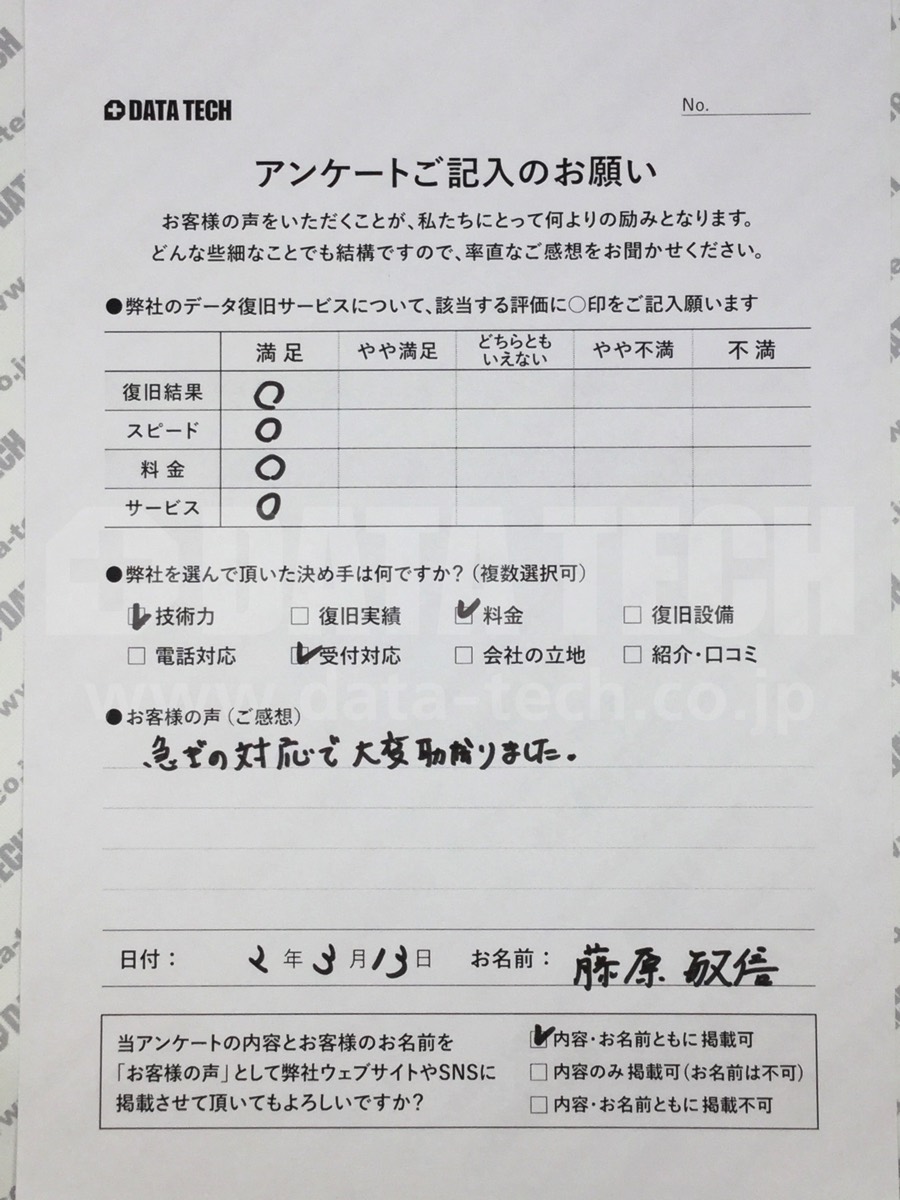 DATA TECH
No.
アンケートご記入のお願い
お客様の声をいただくことが、私たちにとって何よりの励みとなります。
どんな些細なことでも結構ですので、率直なご感想をお聞かせください。
●弊社のデータ復旧サービスについて、該当する評価に○印をご記入願います
満足 やや満足 どちらとも いえない やや不満 不満
復旧結果 ○
スピード ○
料金 ○
サービス ○
●弊社を選んで頂いた決め手は何ですか?(複数選択可)
技術力 □ 復旧実績 料金 □ 復旧設備
□ 電話対応 受付対応 □ 会社の立地 □ 紹介・口コミ
www.data-tech.co.jp
●お客様の声(ご感想)
急ぎの対応で大変助かりました。
日付: 2年3月13日 お名前: 藤原 敏信
当アンケートの内容とお客様のお名前を
「お客様の声」として弊社ウェブサイトやSNSに
掲載させて頂いてもよろしいですか?
内容・お名前ともに掲載可
□ 内容のみ掲載可(お名前は不可)
□ 内容・お名前ともに掲載不可